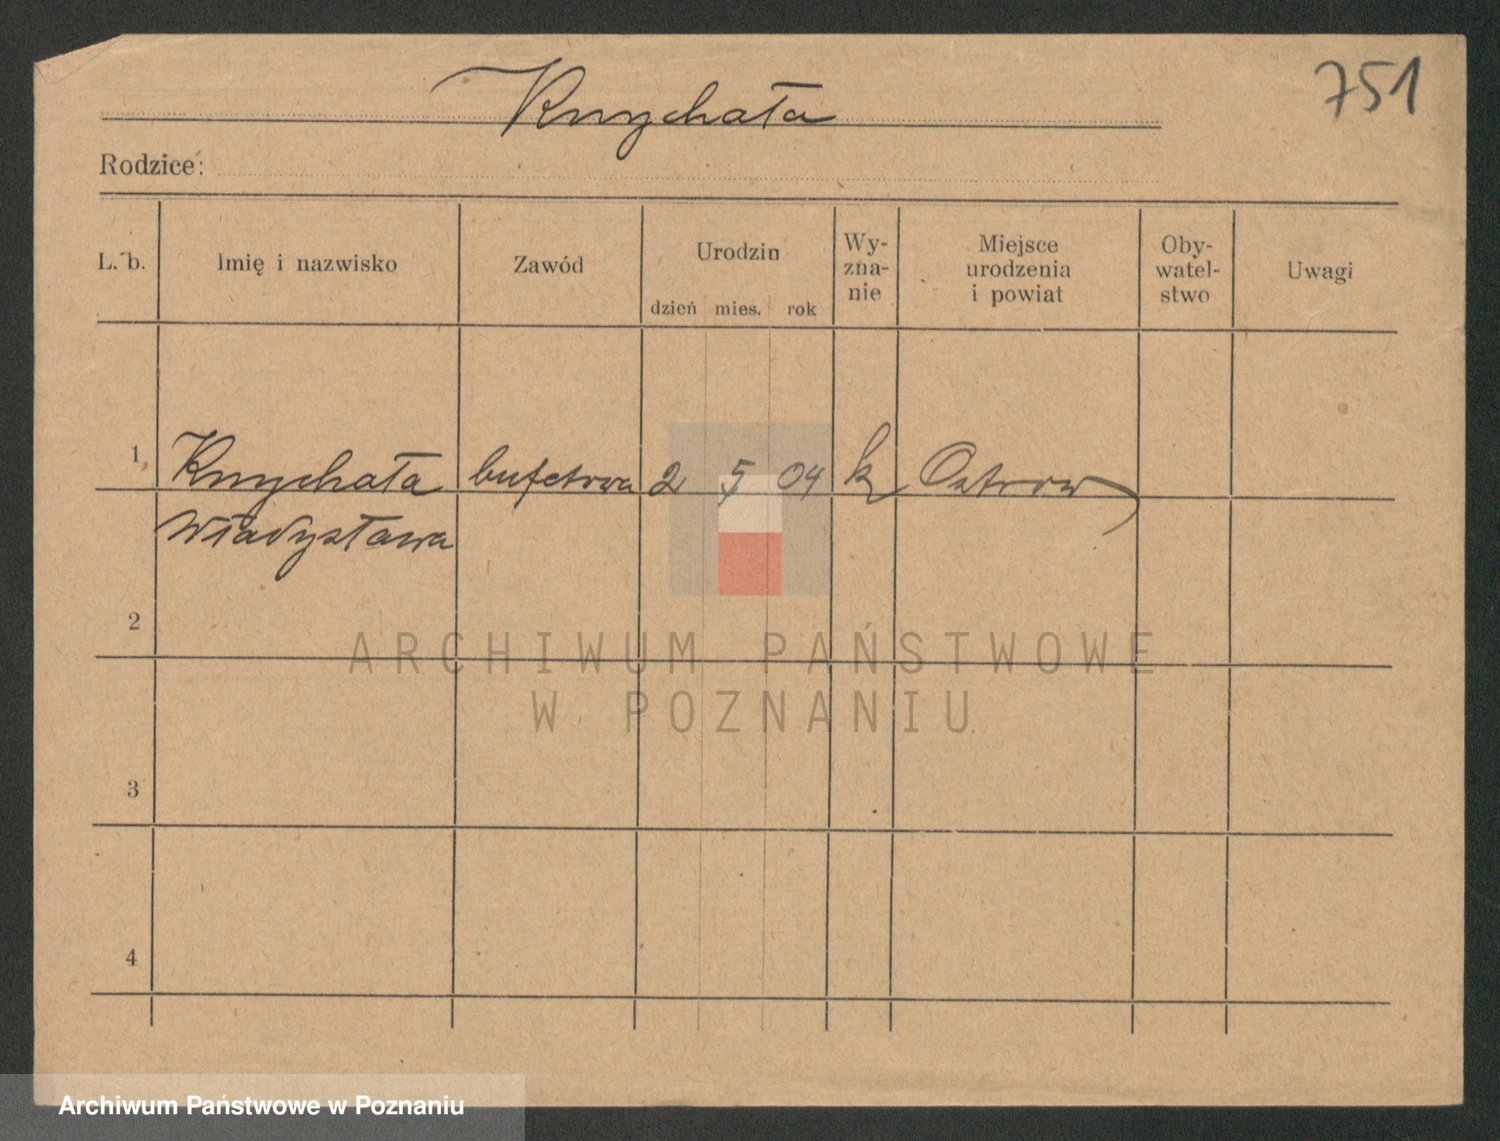 751
Knychała
Rodzice:
L. b. Imię i nazwisko Zawód Urodzin dzień mies. rok Wy-zna-nie Miejsce urodzenia i powiat Oby-watel-stwo Uwagi
1 Knychała bufetowa 2 5 04 k Ostrów
Władysława
2
ARCHIWUM PAŃSTWOWE
W POZNANIU
3
4
Archiwum Państwowe w Poznaniu